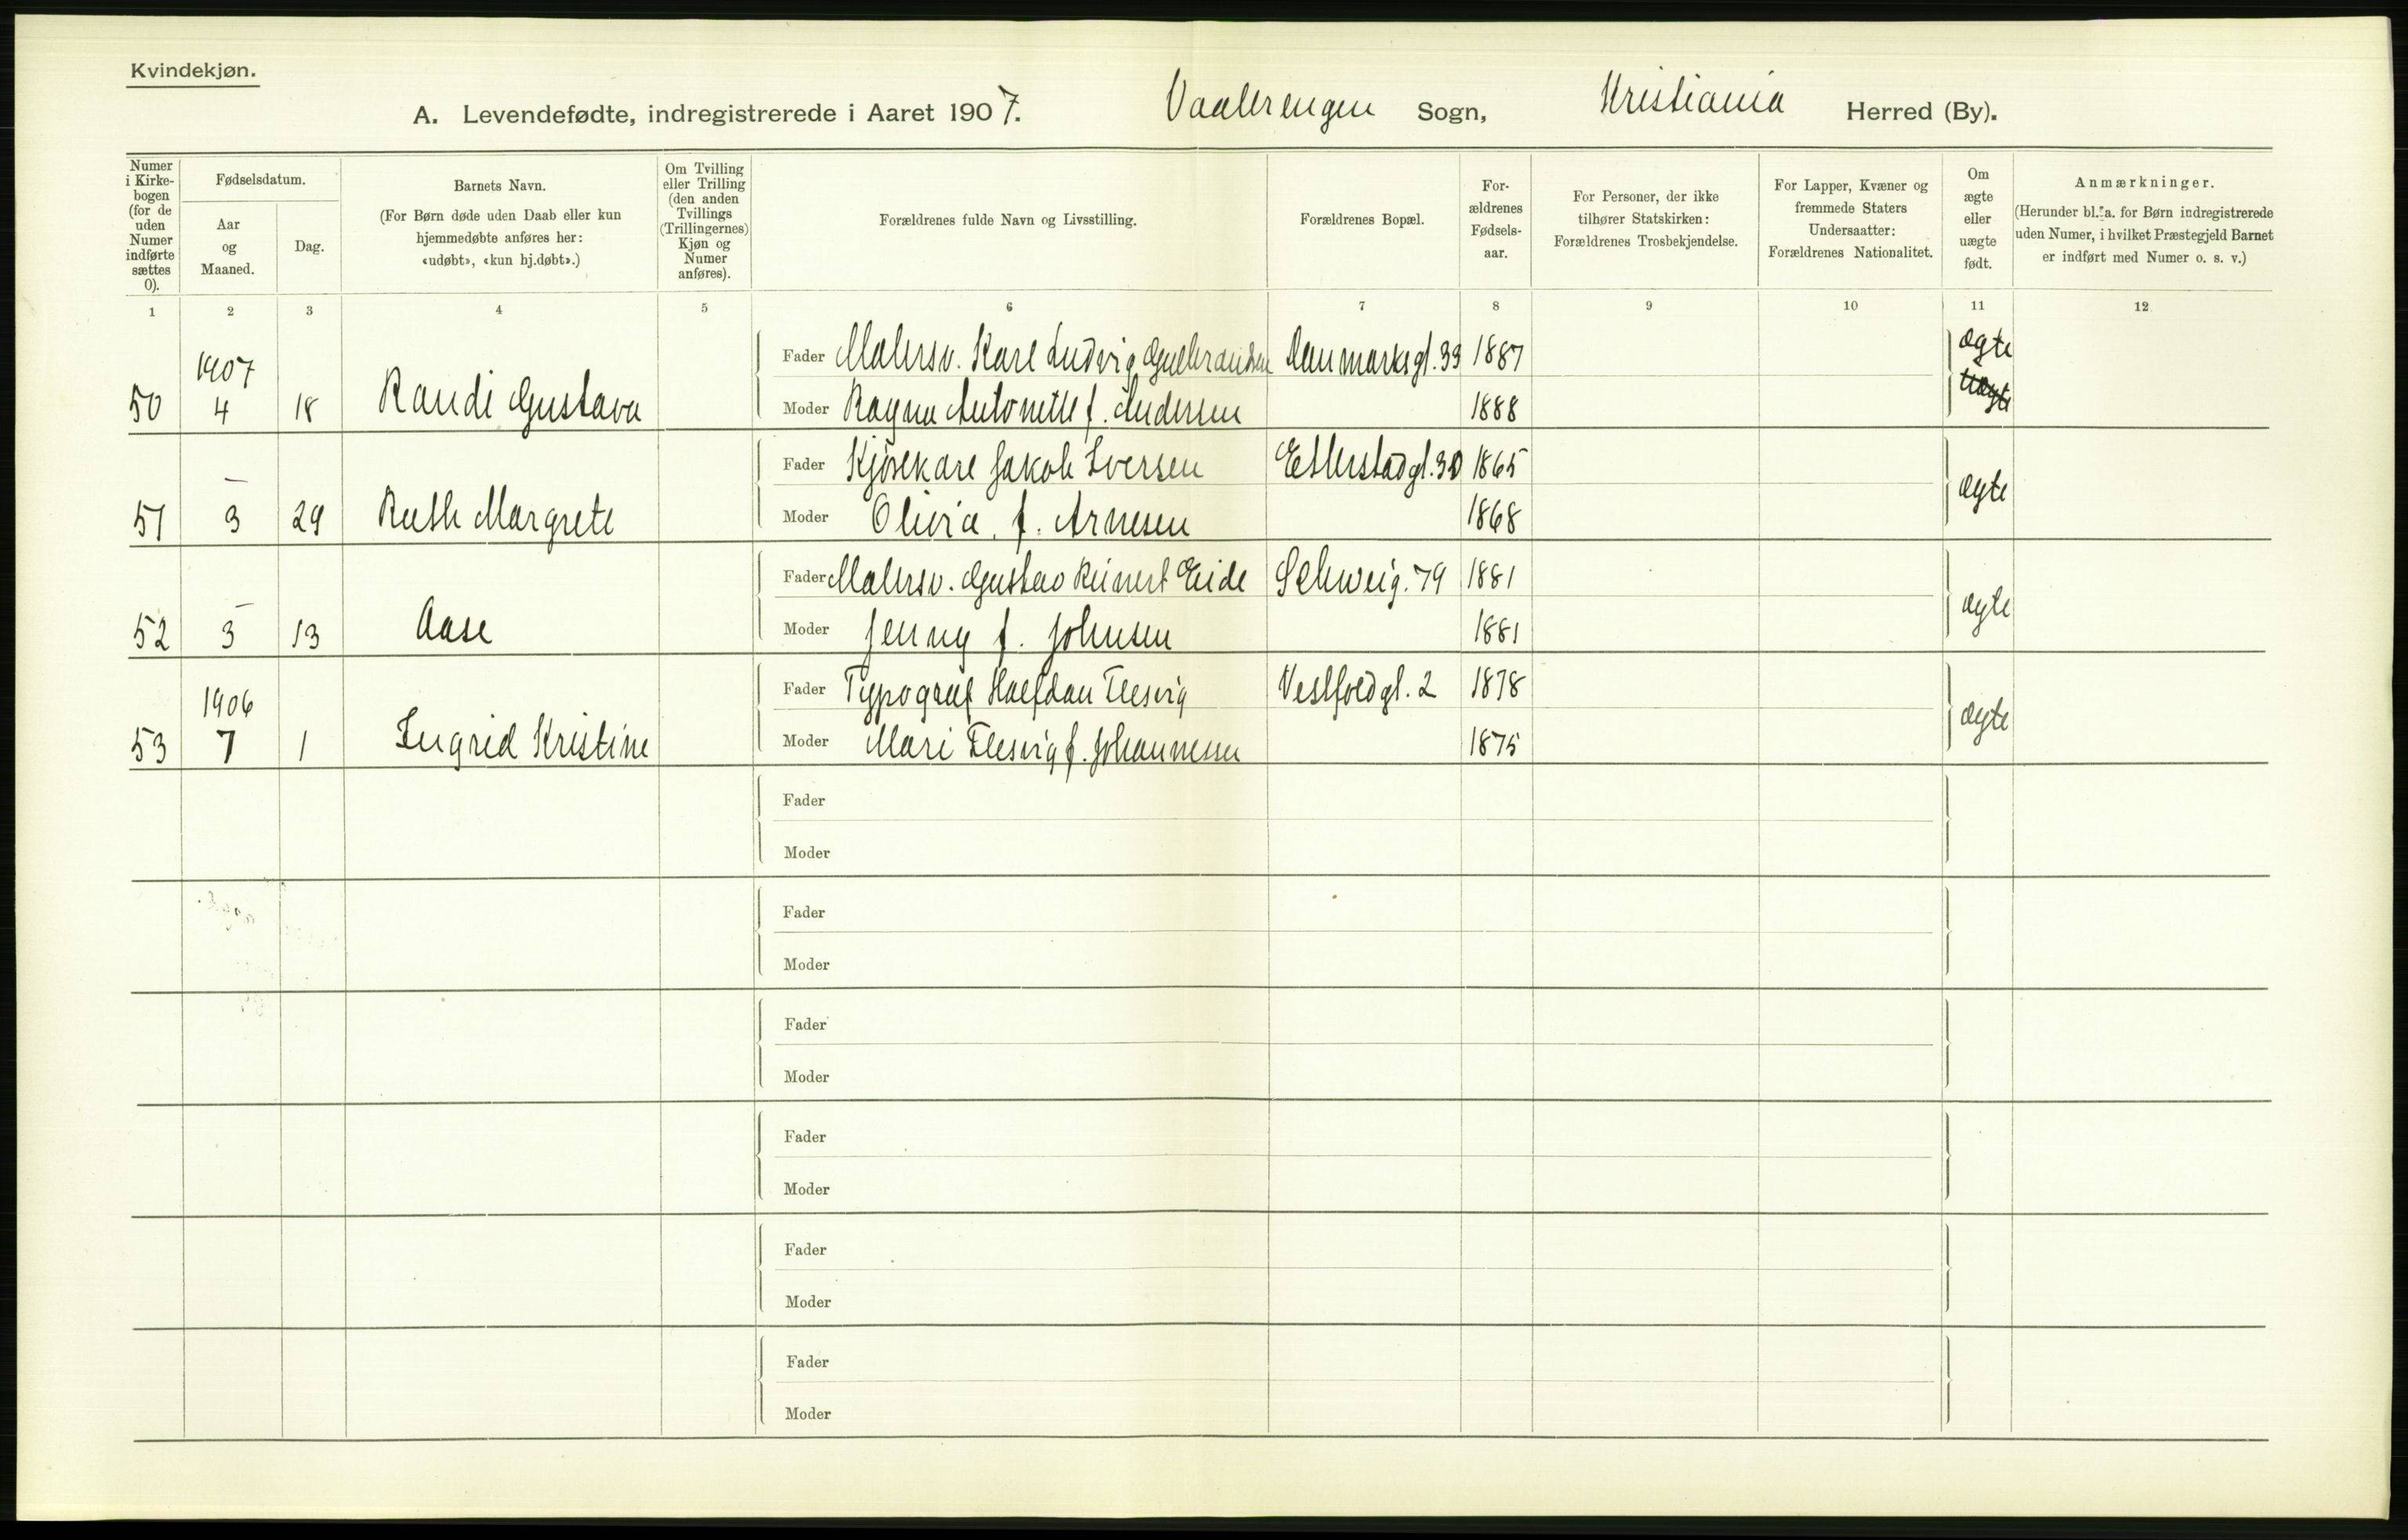 Kvindekjøn.
A. Levendefødte, indregistrerede i Aaret 1907. Vaalerengen Sogn, Kristiania Herred (By).
Numer i Kirkebogen (for de uden Numer indførte sættes 0).
Fødselsdatum.
Aar og Maaned.
Dag.
Barnets Navn.
(For Børn døde uden Daab eller kun hjemmedøbte anføres her: «udøbt», «kun hj.døbt».)
Om Tvilling eller Trilling (den anden Tvillings (Trillingernes) Kjøn og Numer anføres).
Forældrenes fulde Navn og Livsstilling.
Forældrenes Bopæl.
Forældrenes Fødselsaar.
For Personer, der ikke tilhører Statskirken: Forældrenes Trosbekjendelse.
For Lapper, Kvæner og fremmede Staters Undersaatter: Forældrenes Nationalitet.
Om ægte eller uægte født.
Anmærkninger.
(Herunder bl. a. for Børn indregistrerede uden Numer, i hvilket Præstegjeld Barnet er indført med Numer o. s. v.)
1 2 3 4 5 6 7 8 9 10 11 12
1907 Fader Malersv. Karl Ludvig Gulbrandsen Danmarksgt. 33 1887 ægte
50 4 18 Randi Gustava Moder Ragna Antonette f. Andersen 1888 uægte
— Fader Kjørekarl Jakob Iversen Etterstadgt. 30 1865 ægte
51 3 29 Ruth Margrete Moder Olivia f. Arnesen 1868
— Fader Malersv. Gustav Reinert Eide Schweig. 79 1881 ægte
52 3 13 Aase Moder Jenny f. Johnsen 1881
1906 Fader Typograf Halfdan Flesvig Vestfoldgt. 2 1878 ægte
53 7 1 Ingrid Kristine Moder Mari Flesvig f. Johannessen 1875
Fader
Moder
Fader
Moder
Fader
Moder
Fader
Moder
Fader
Moder
Fader
Moder